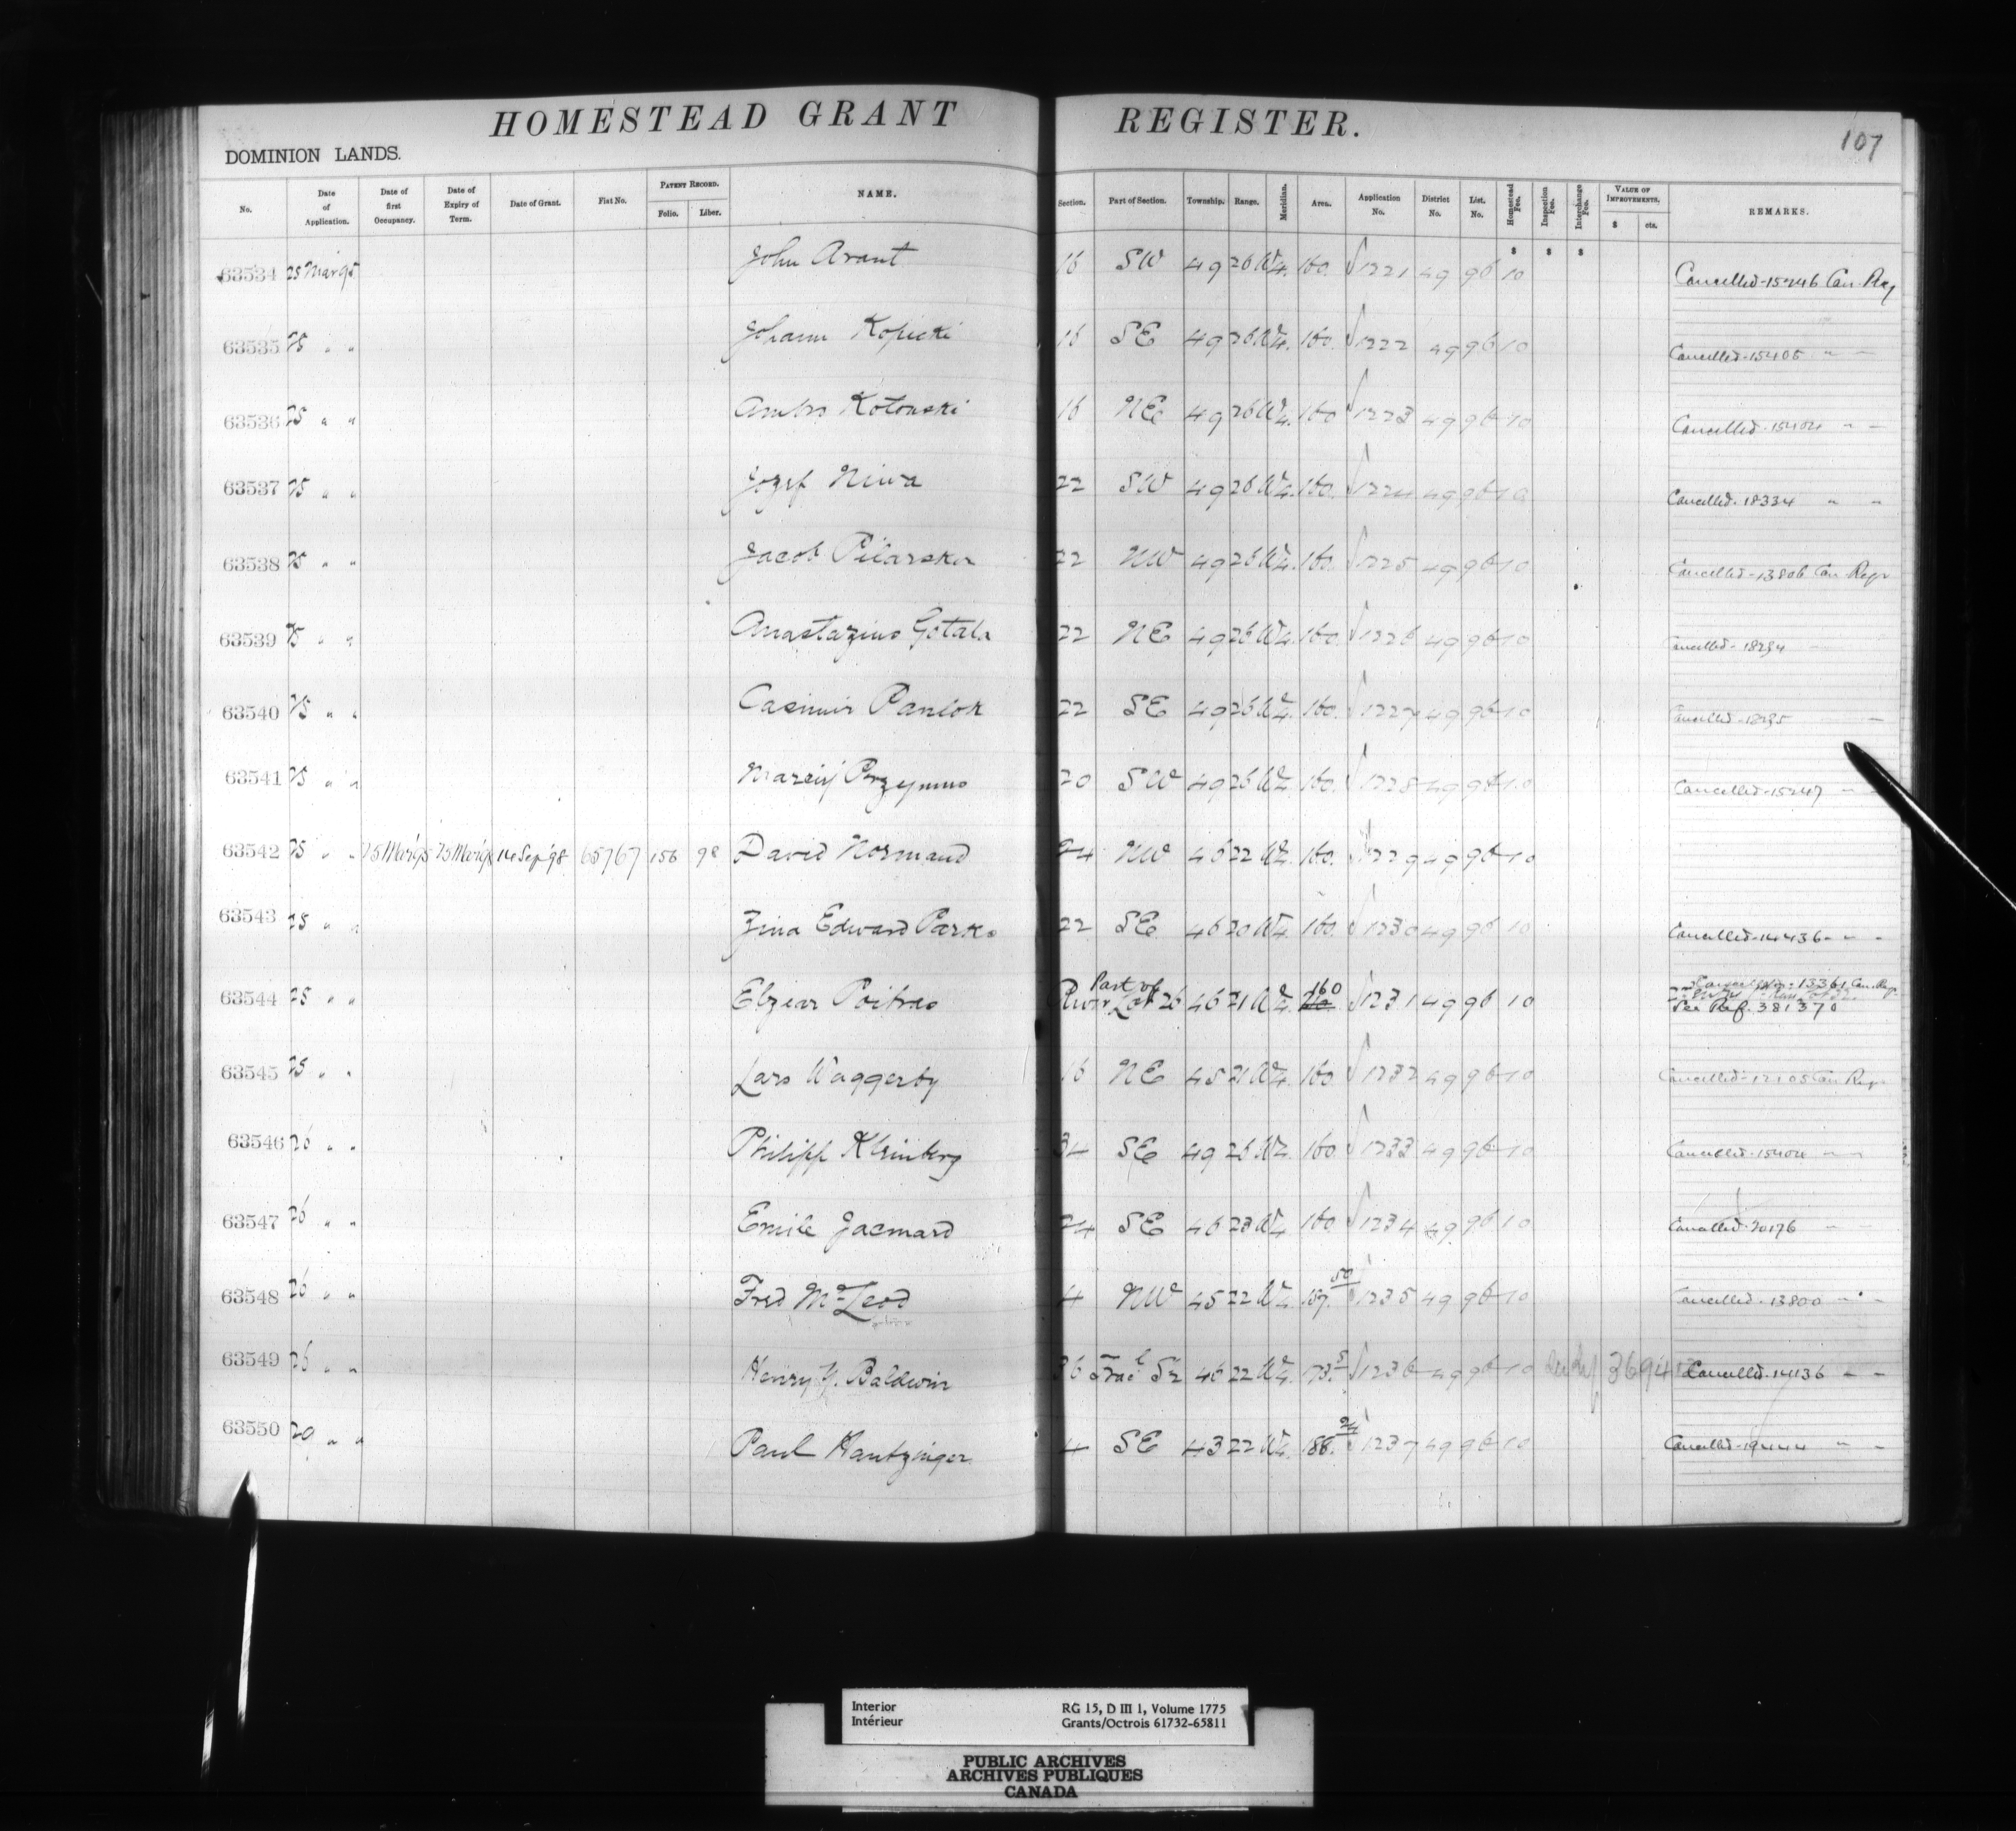 HOMESTEAD GRANT REGISTER.
107
DOMINION LANDS.
No. Date of Application. Date of first Occupancy. Date of Expiry of Term. Date of Grant. Fiat No. PATENT RECORD. Folio. Liber. NAME. Section. Part of Section. Township. Range. Meridian. Area. Application No. District No. List. No. Homestead Fee. Inspection Fee. Interchange Fee. VALUE OF IMPROVEMENTS. $ cts. REMARKS.
$ $ $
63534 25 Mar 95 John Arant 16 SW 49 26 W4. 160. 1221 49 96 10 Cancelled-15246 Can. Reg
63535 25 " " Johann Kopicki 16 SE 49 26 W4. 160. 1222 49 96 10 Cancelled-15405 " "
63536 25 " " Kotonski 16 NE 49 26 W4. 160 1223 49 96 10 Cancelled-15404 " "
63537 25 " " Jozef Niwa 22 SW 49 26 W4. 160. 1224 49 96 10 Cancelled-18334 " "
63538 25 " " Jacob Pilarska 22 NW 49 26 W4. 160. 1225 49 96 10 Cancelled-13806 Can Regr
63539 25 " " Anastazius Gotala 22 NE 49 26 W4. 160. 1226 49 96 10 Cancelled-18294
63540 25 " " Casimir Panlok 22 SE 49 26 W4. 160. 1227 49 96 10 Cancelled
63541 25 " " Przymus 20 SW 49 26 W4. 160. 1228 49 96 10 Cancelled-15247 "
63542 25 " " 25 Mar 95 25 Mar 98 14 Sep 98 65767 156 98 David Normand 24 NW 46 22 W4. 160. 1229 49 96 10
63543 25 " " Zina Edward Parks 22 SE 46 20 W4. 160. 1230 49 96 10 Cancelled-14436 " "
63544 25 " " Elzear Poitras Part of River Lot 26 46 21 W4. 160 1231 49 96 10 13361 Can. Reg.
See Ref. 381370
63545 25 " " Lars Waggerby 16 NE 45 21 W4. 160 1232 49 96 10 Cancelled-12105 Can Regr
63546 26 " " Philipp Kleinberg 34 SE 49 26 W4. 160 1233 49 96 10 Cancelled-15404 " "
63547 26 " " Emile Jacmard 24 SE 46 23 W4. 160 1234 49 96 10 Cancelled-20176 "
63548 26 " " Fred McLeod 4 NW 45 22 W4. 157.50 1235 49 96 10 Cancelled-13800 " "
63549 26 " " Henry Y. Baldwin 36 Fracl S½ 46 22 W4. 173.5 1236 49 96 10 Cancelled-14136 " "
63550 29 " " Paul Hantzinger 4 SE 43 22 W4. 1237 49 96 10 Cancelled-19444 " "
Interior
Intérieur
RG 15, D III 1, Volume 1775
Grants/Octrois 61732-65811
PUBLIC ARCHIVES
ARCHIVES PUBLIQUES
CANADA